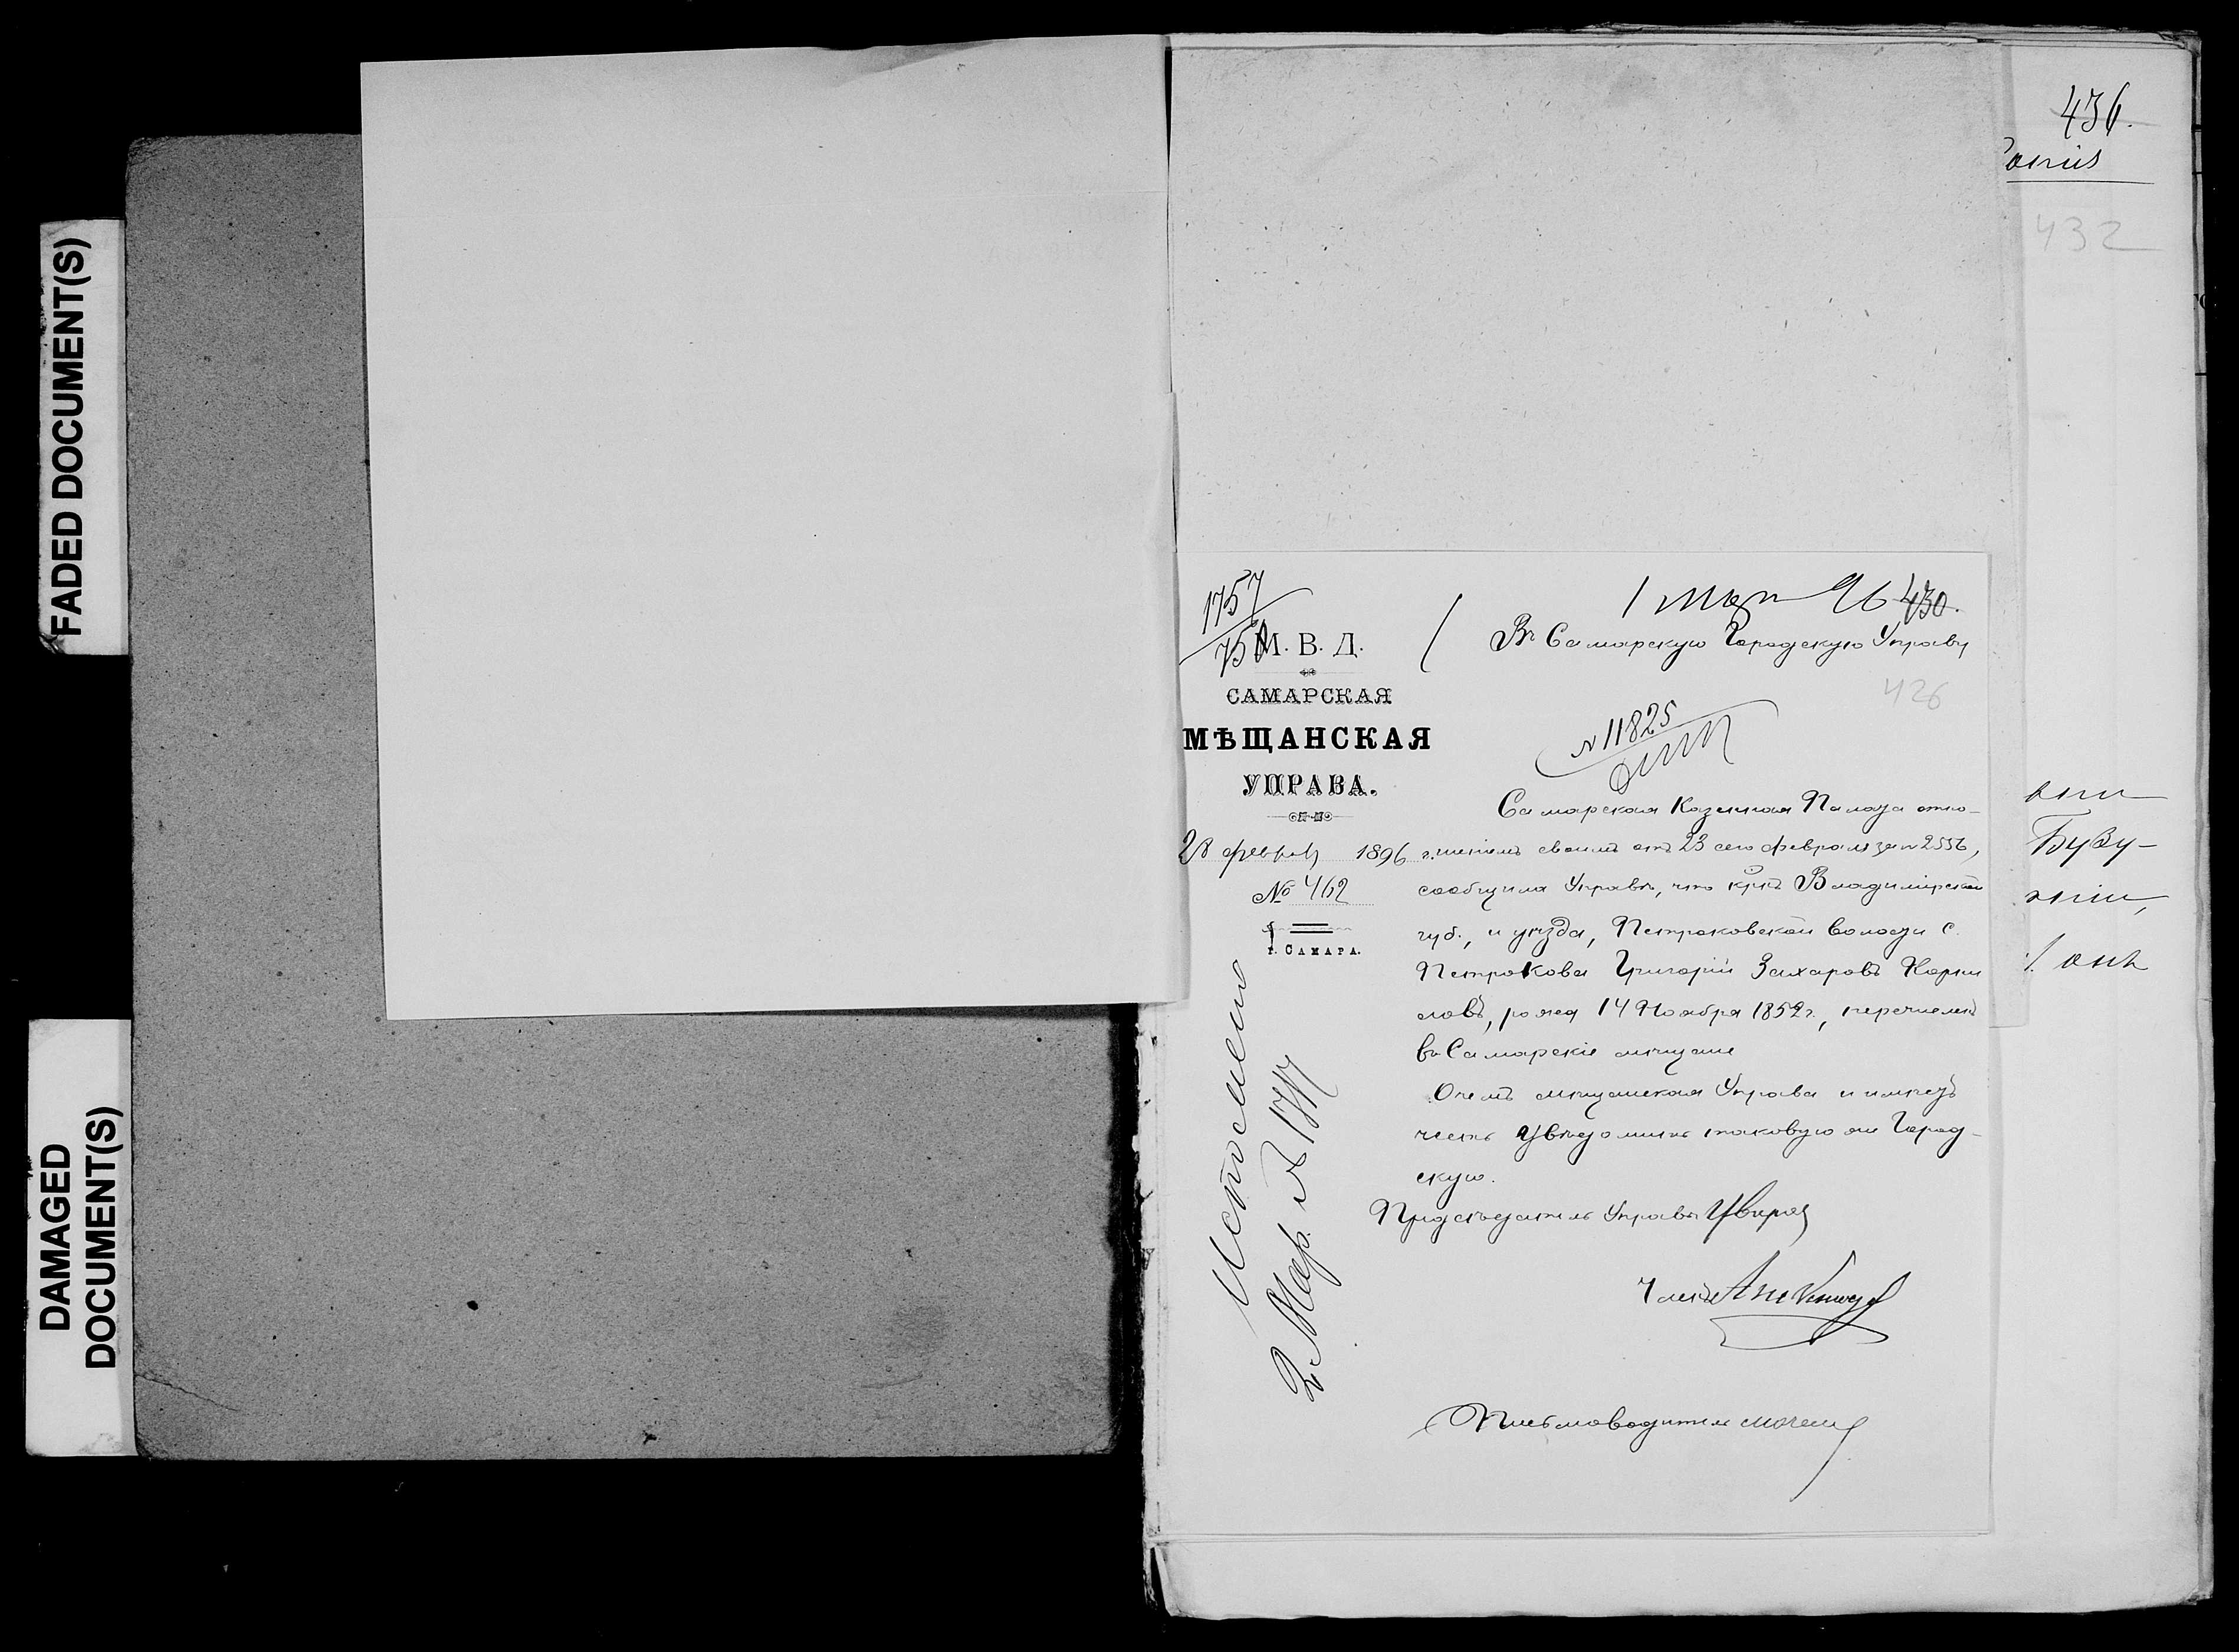 FADED DOCUMENT(S)
DAMAGED
DOCUMENT(S)
436.
432
1757
1 мар 96
430.
М. В. Д.
САМАРСКАЯ
МѢЩАНСКАЯ
УПРАВА.
28 феврал 1896 г.
№ 462
г. САМАРА.
Въ Самарскую Городскую Управу
426
№ 11825
Самарская Казенная Палата отно-
шеніемъ своимъ отъ 23 сего февраля за № 2556,
сообщила Управѣ, что крнъ Владимірской
губ., и уѣзда, Петроковской волости С.
Петрокова Григорій Захаровъ Корни
ловъ, рожд 14 Ноября 1852 г., перечисленъ
въ Самарскіе мѣщане
О чемъ мѣщанская Управа и имѣетъ
честь увѣдомить таковую же Город-
скую.
Предсѣдатель Управы
Членъ
Письмоводитель
Исполнено
2 Мар. № 1717
Бузу-